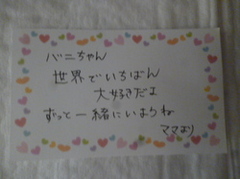 バニちゃん
世界でいちばん
大好きだよ
ずっと一緒にいようね
ママより